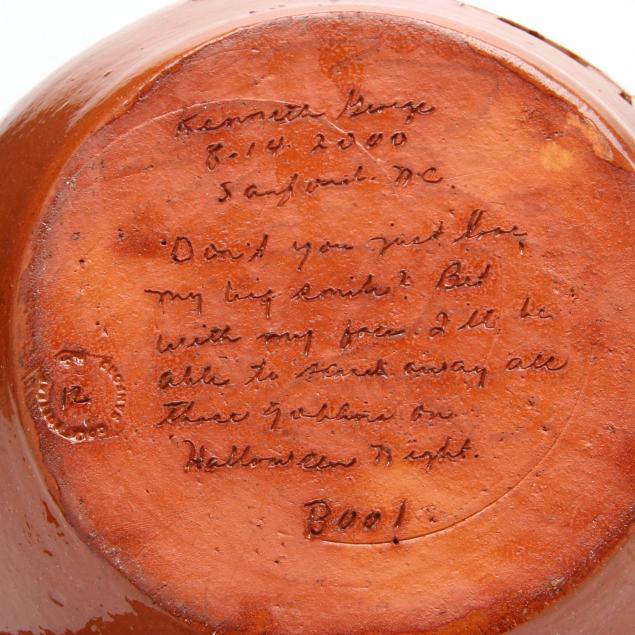 Kenneth George
8.14.2000
Sanford. N.C.
"Don't you just love
my big smile? Bet
with my face I'll be
able to scare away all
those goblins on
Halloween Night.
Boo!
12